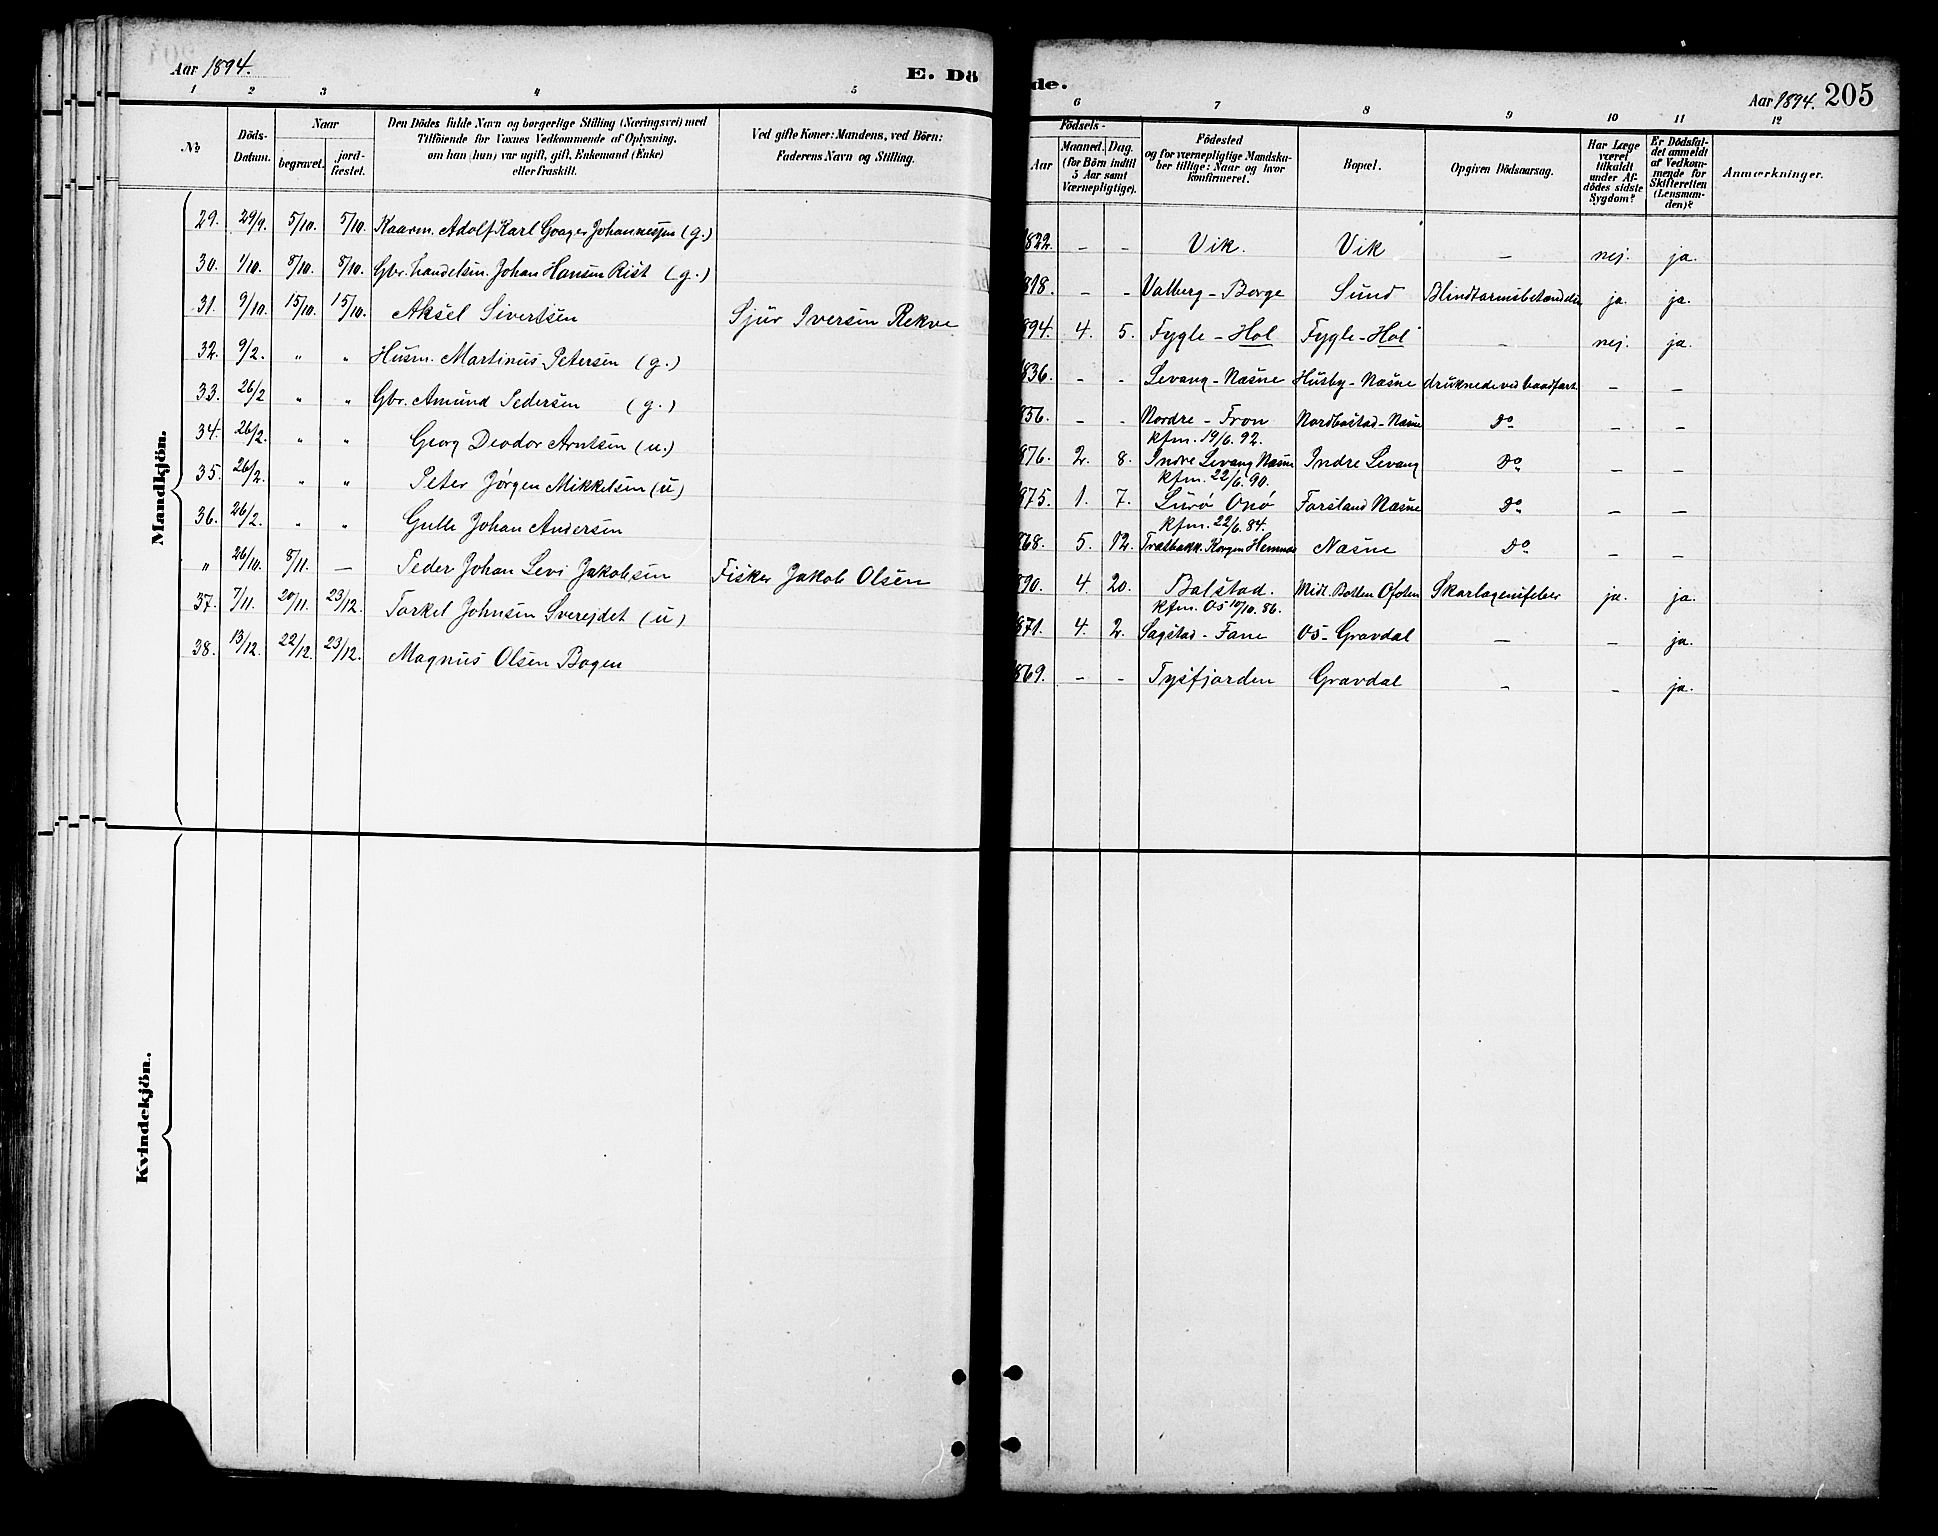 Aar 1894.
E. Dö
de.
Aar 1894. 205
1 2 3 4 5
6 7 8 9 10 11 12
No
Döds-Datum.
Naar
begravet.
jord-fæstet.
Den Dödes fulde Navn og borgerlige Stilling (Næringsvei) med
Tilföiende for Voxnes Vedkommende af Oplysning,
om han (hun) var ugift, gift, Enkemand (Enke)
eller fraskilt.
Ved gifte Koner: Mandens, ved Börn:
Faderens Navn og Stilling.
Födsels-
Aar
Maaned. Dag.
(for Börn indtil
5 Aar samt
Værnepligtige).
Födested
og for værnepligtige Mandska-
ber tillige: Naar og hvor
konfirmeret.
Bopæl.
Opgiven Dödsaarsag.
Har Læge
været
tilkaldt
under Af-
dödes sidste
Sygdom?
Er Dödsfal-
det anmeldt
af Vedkom-
mende for
Skifteretten
(Lensman-
den)?
Anmærkninger.
Mandkjön.
29. 29/9. 5/10. 5/10. Kaarm. Adolf Karl Johannessen (g.) 1822. – – Vik. Vik – nej. ja.
30. 1/10. 8/10. 8/10. Gbr. handelsm. Johan Hansen Rist (g.) 1818. – – Valberg – Borge Sund ja. ja.
31. 9/10. 15/10. 15/10. Aksel Sivertsen Sjur Iversen Rekve 894. 4. 5. Fygle – Hol Fygle – Hol – nej. ja.
32. 9/2. " " Husm. Martinus Petersen (g.) 836. – – Levang – Næsne Husby – Næsne druknede ved baadfart – –
33. 26/2 " " Gbr. Amund Pedersen (g.) 856. – – Nordre – Fron Næsne Do – –
34. 26/2. " " Georg Deodor Arntsen (u.) kfm. 19/6. 92. 876. 2. 8. Indre Levang Næsne Indre Levang Do – –
35. 26/2. " " Peter Jørgen Mikkelsen (u) kfm. 22/6. 90. 875. 1. 7. Lurø Onø Forsland Næsne Do – –
36. 26/2. " " Gulle Johan Andersen kfm. 22/6. 84. 868. 5. 12. Korgen Hemnæs Næsne Do – –
" 26/10. 8/11. – Peder Johan Levi Jakobsen Fisker Jakob Olsen 890. 4 20. Balstad. Midt. Botten Ofoten Skarlagensfeber ja. ja.
37. 7/11. 20/11. 23/12. Torkel Johnsen Sverejdet (u) kfm. Os 10/10. 86. 871. 4. 2. Sagstad – Fane Os – Gravdal – – ja.
38. 13/12. 22/12. 23/12. Magnus Olsen Bogen 869. – – Tysfjorden Gravdal – – ja.
Kvindekjön.